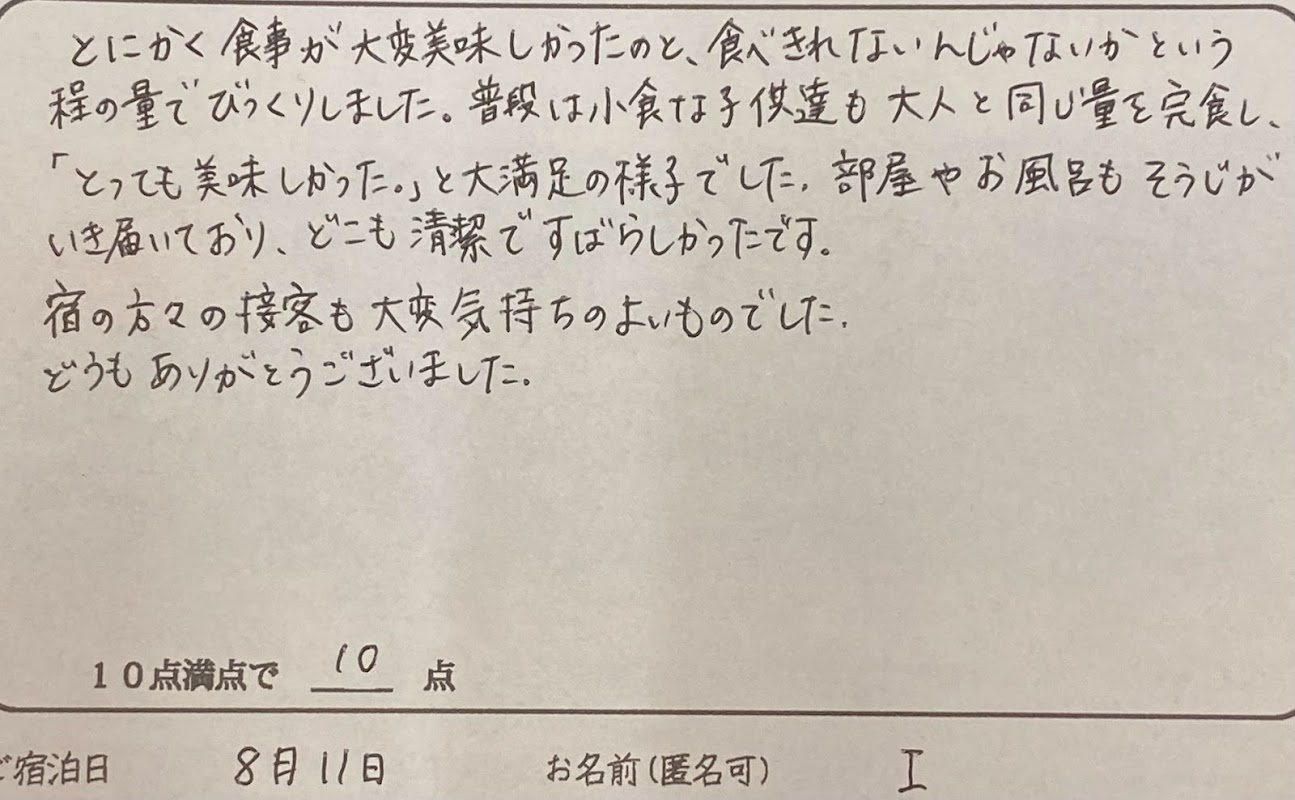 とにかく食事が大変美味しかったのと、食べきれないんじゃないかという
程の量でびっくりしました。普段は小食な子供達も大人と同じ量を完食し、
「とっても美味しかった。」と大満足の様子でした。部屋やお風呂もそうじが
いき届いており、どこも清潔ですばらしかったです。
宿の方々の接客も大変気持ちのよいものでした。
どうもありがとうございました。
10点満点で 10 点
ご宿泊日 8月11日 お名前(匿名可) I